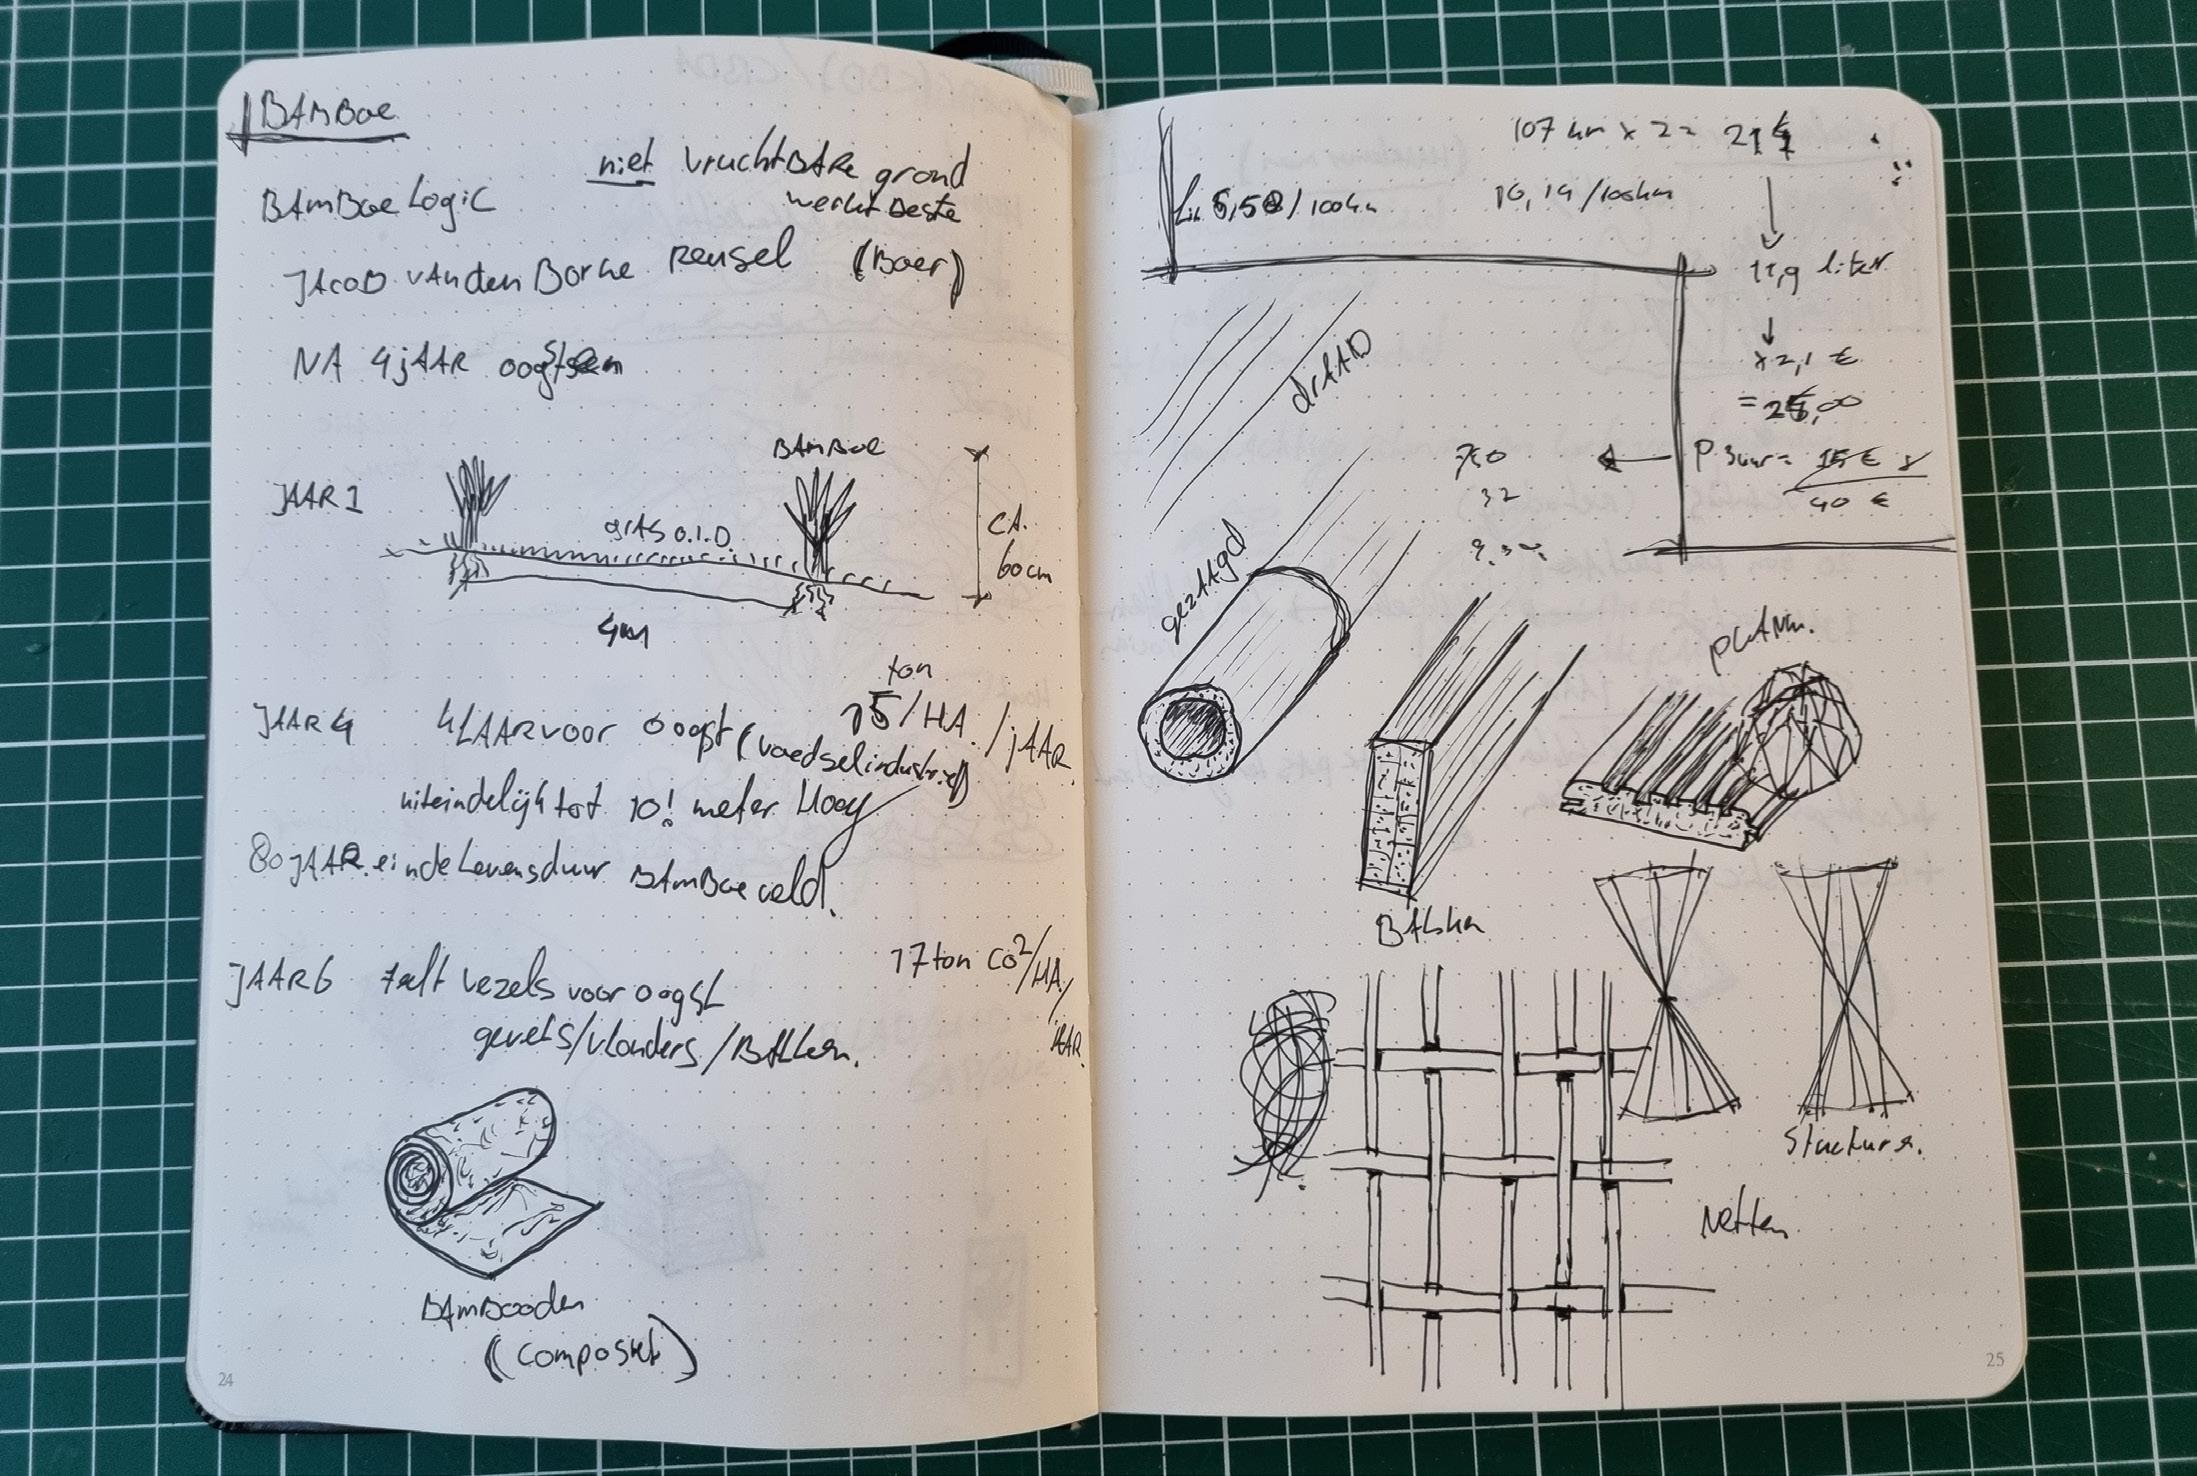 BAMBOE
niet vruchtBARe grond
werkt Beste
BAMBoe Logic
JAcoB vAn den Borne Reusel (Boer)
NA 4 jAAR oogsten
BAMBoe
JAAR 1
grAS o.I.D.
CA.
60cm
4m
ton
JAAR 4 kLAAR voor oogst (voedselindustrie) 15/HA./jAAR.
uiteindelijk tot 10! meter Hoog
80 JAAR. einde Levensduur BAMBoe veld.
17 ton CO²/HA/JAAR
JAAR 6 vezels voor oogst
gevels/vlonders/BALken.
BAMBooden
(composiet)
24
107 km x 2 = 214
/100km
10,14/100km
11,9 liter
x 2,1 €
=
P. 3 uur = 15 €
40 €
drAAD
750
32
gezAAgd
pLANk.
BALken
Stuctuur.
Netten
25